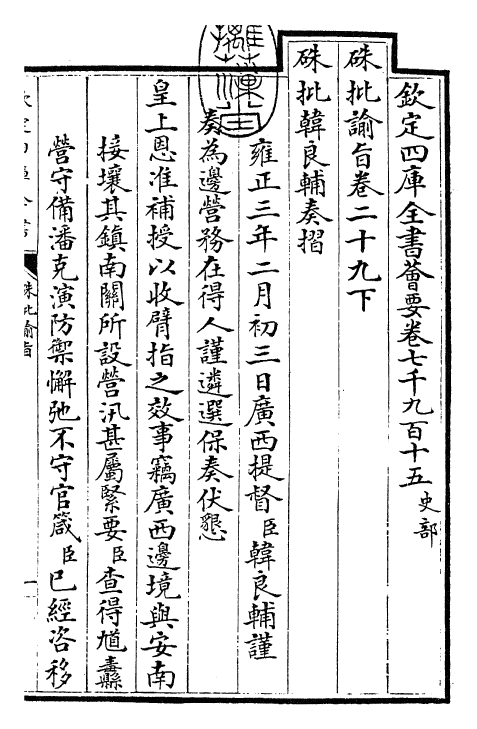 欽定四庫全書薈要卷七千九百十五 史部
硃批諭旨卷二十九下
硃批韓良輔奏摺
雍正三年二月初三日廣西提督臣韓良輔謹
奏為邊營務在得人謹遴選保奏伏懇
皇上恩准補授以收臂指之效事竊廣西邊境與安南
接壤其鎮南關所設營汛甚屬緊要臣查得馗纛
營守備潘克演防禦懈弛不守官箴臣已經咨移
硃批諭旨
一